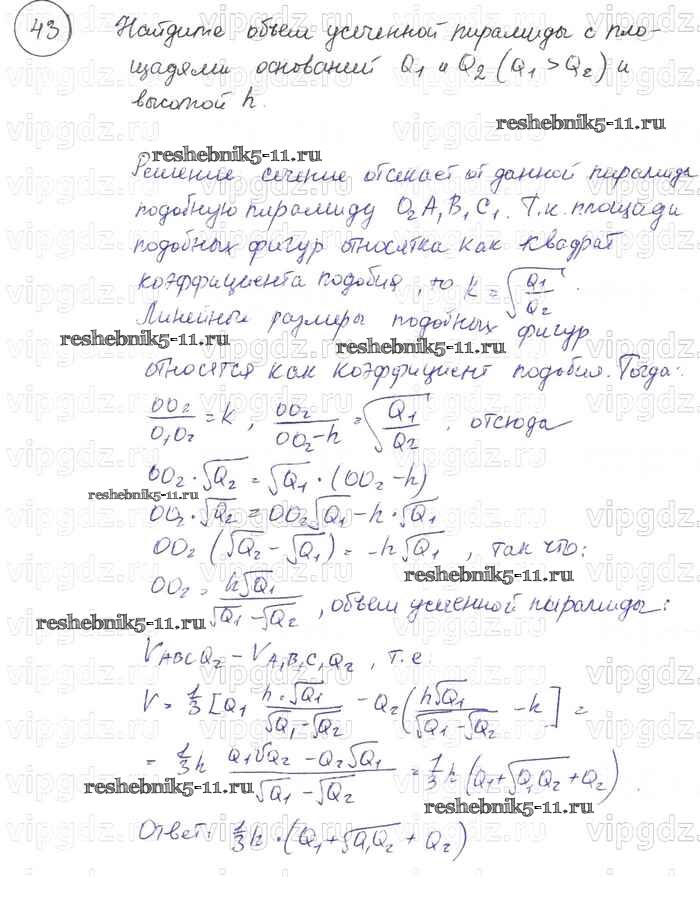 43 Найдите объем усеченной пирамиды с пло-
щадями оснований Q₁ и Q₂ (Q₁ > Q₂) и
высотой h.
reshebnik5-11.ru
reshebnik5-11.ru
Решение: сечение отсекает от данной пирамиды
подобную пирамиду O₂A₁B₁C₁. Т.к. площади
подобных фигур относятся как квадрат
коэффициента подобия, то k = √(Q₁/Q₂).
Линейные размеры подобных фигур
reshebnik5-11.ru reshebnik5-11.ru
относятся как коэффициент подобия. Тогда:
OO₂/O₁O₂ = k, OO₂/(OO₂-h) = √(Q₁/Q₂). отсюда
OO₂ · √Q₂ = √Q₁ · (OO₂ - h)
reshebnik5-11.ru
OO₂ · √Q₂ = OO₂√Q₁ - h · √Q₁
OO₂ (√Q₂ - √Q₁) = -h√Q₁, так что:
reshebnik5-11.ru
OO₂ = h√Q₁/(√Q₁ - √Q₂), объем усеченной пирамиды:
reshebnik5-11.ru
V ABCQ₂ - V A₁B₁C₁Q₂, т.е.
V = 1/3 [Q₁ h·√Q₁/(√Q₁ - √Q₂) - Q₂ (h√Q₁/(√Q₁ - √Q₂) - h] =
= 1/3 h (Q₁√Q₂ - Q₂√Q₁)/(√Q₁ - √Q₂) = 1/3 h (Q₁ + √Q₁Q₂ + Q₂).
reshebnik5-11.ru reshebnik5-11.ru
Ответ: 1/3 h · (Q₁ + √Q₁Q₂ + Q₂)
vipgdz.ru